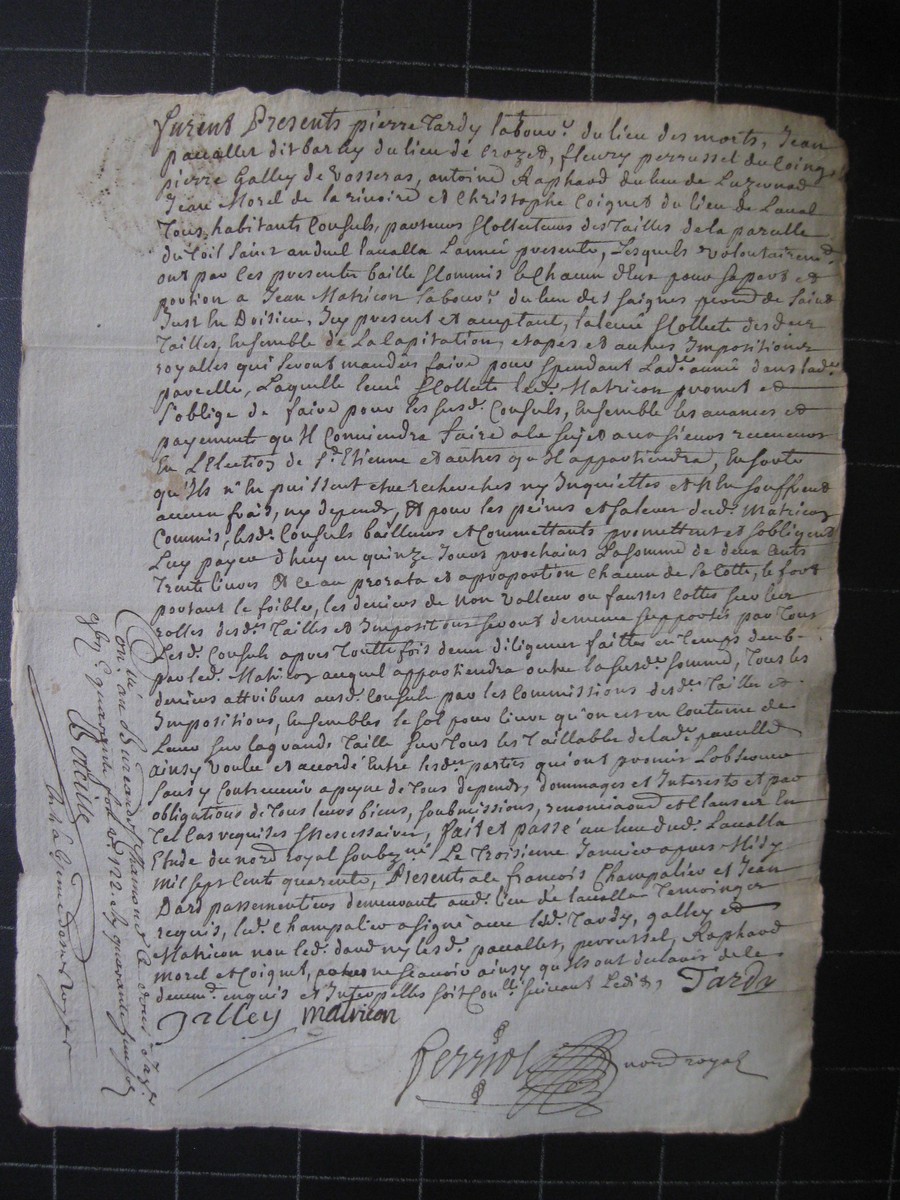 Furent Presents pierre Tardy labour. du lieu des morts, Jean
paccallet dit barley du lieu de Crozet, fleury perrussel du Coing
pierre Galley de Vosseras, antoine Raphaud du lieu de Luzernod
Jean Morel de la riuoire et Christophe Coignet du lieu de Laual
Tous habitants Consuls, porteurs Collecteurs des Tailles de la par
du Toil Saint andeol laualla Lannée presente, Lesquels volontairem.
ont par Ces presentes baillé Commis le Chacun deux pour sa part et
portion a Jean Matricon labour. du lieu des Saignes par de Saint
Just En Doisieu, Icy present et acceptant, la leuée Collecte des d
Tailles, Ensemble de La Capitation, etapes et autres Impositions
royalles qui seront mandées faire pour Et pendant Lad. année dans lad.
paroelle, Laquelle leuée Collecte led. Matricon promet et
s'oblige de faire pour les susd. Consuls, Ensemble les auances et
payement qu'Il Conuiendra faire a Ce sujet aux sieurs receueurs
En L'Election de S. Etienne et autres qu'Il appartiendra, En sorte
qu'Ils n'En puissent etre recherches ny Inquiettes et n'En souffrent
aucun frais, ny depends, Et pour les peines et salaires dud. Matricon
Commis, lesd. Consuls bailleurs et Commettants promettent et s'obligent
Luy payer d'huy en quinze Jours prochains La somme de deux Cents
Trente liures Et Ce au prorata et a proportion Chacun de sa Cotte, le fort
portant le foible, les deniers de non valleur ou fausses Cottes sur les
rolles desd. Tailles et Impositions seront de meme supportés par Tous
Lesd. Consuls apres Toutte fois deue diligence faitte en Temps deub
par led. Matricon auquel appartiendra outre la susd. somme, Tous les
deniers attribues auxd. Consuls par les Commissions desd. Tailles et
Impositions, Ensembles le sol pour liure qu'on est en Coutume de
Leuer sur la grande Taille sur Tous les Taillable de lad. paroelle
ainsy voulu et accordé Entre lesd. parties qu'ont promis L'obseruer
sans y Contreuenir a peyne de Tous depends, dommages et Interests et par
obligations de Tous leurs biens, soubmissions, renonciaons et Clauses En
Tel Cas requises Et necessaires, fait et passé au lieu dud. Laualla
Etude du nore royal soubzné Le Troisieme Januier apres Midy
Mil sept Cent quarente, Presents s francois Champalier et Jean
Dard passementiers demeurants aud. lieu de laualla Temoings
requis, led. Champalier a signé auec led. Tardy, galley et
Matricon non led. dard ny lesd. paccallet, perrussel, Raphaud
morel et Coignet, pour ne scauoir ainsy qu'Ils ont declaré de Ce
deuem. enquis et Interpelles soit Con. suiuant L'edit, Tardy
Galley matricon
Ferriol nore royal
Con. au Bureau de S. Chamond Ce douze Jan.
1740
Bataille